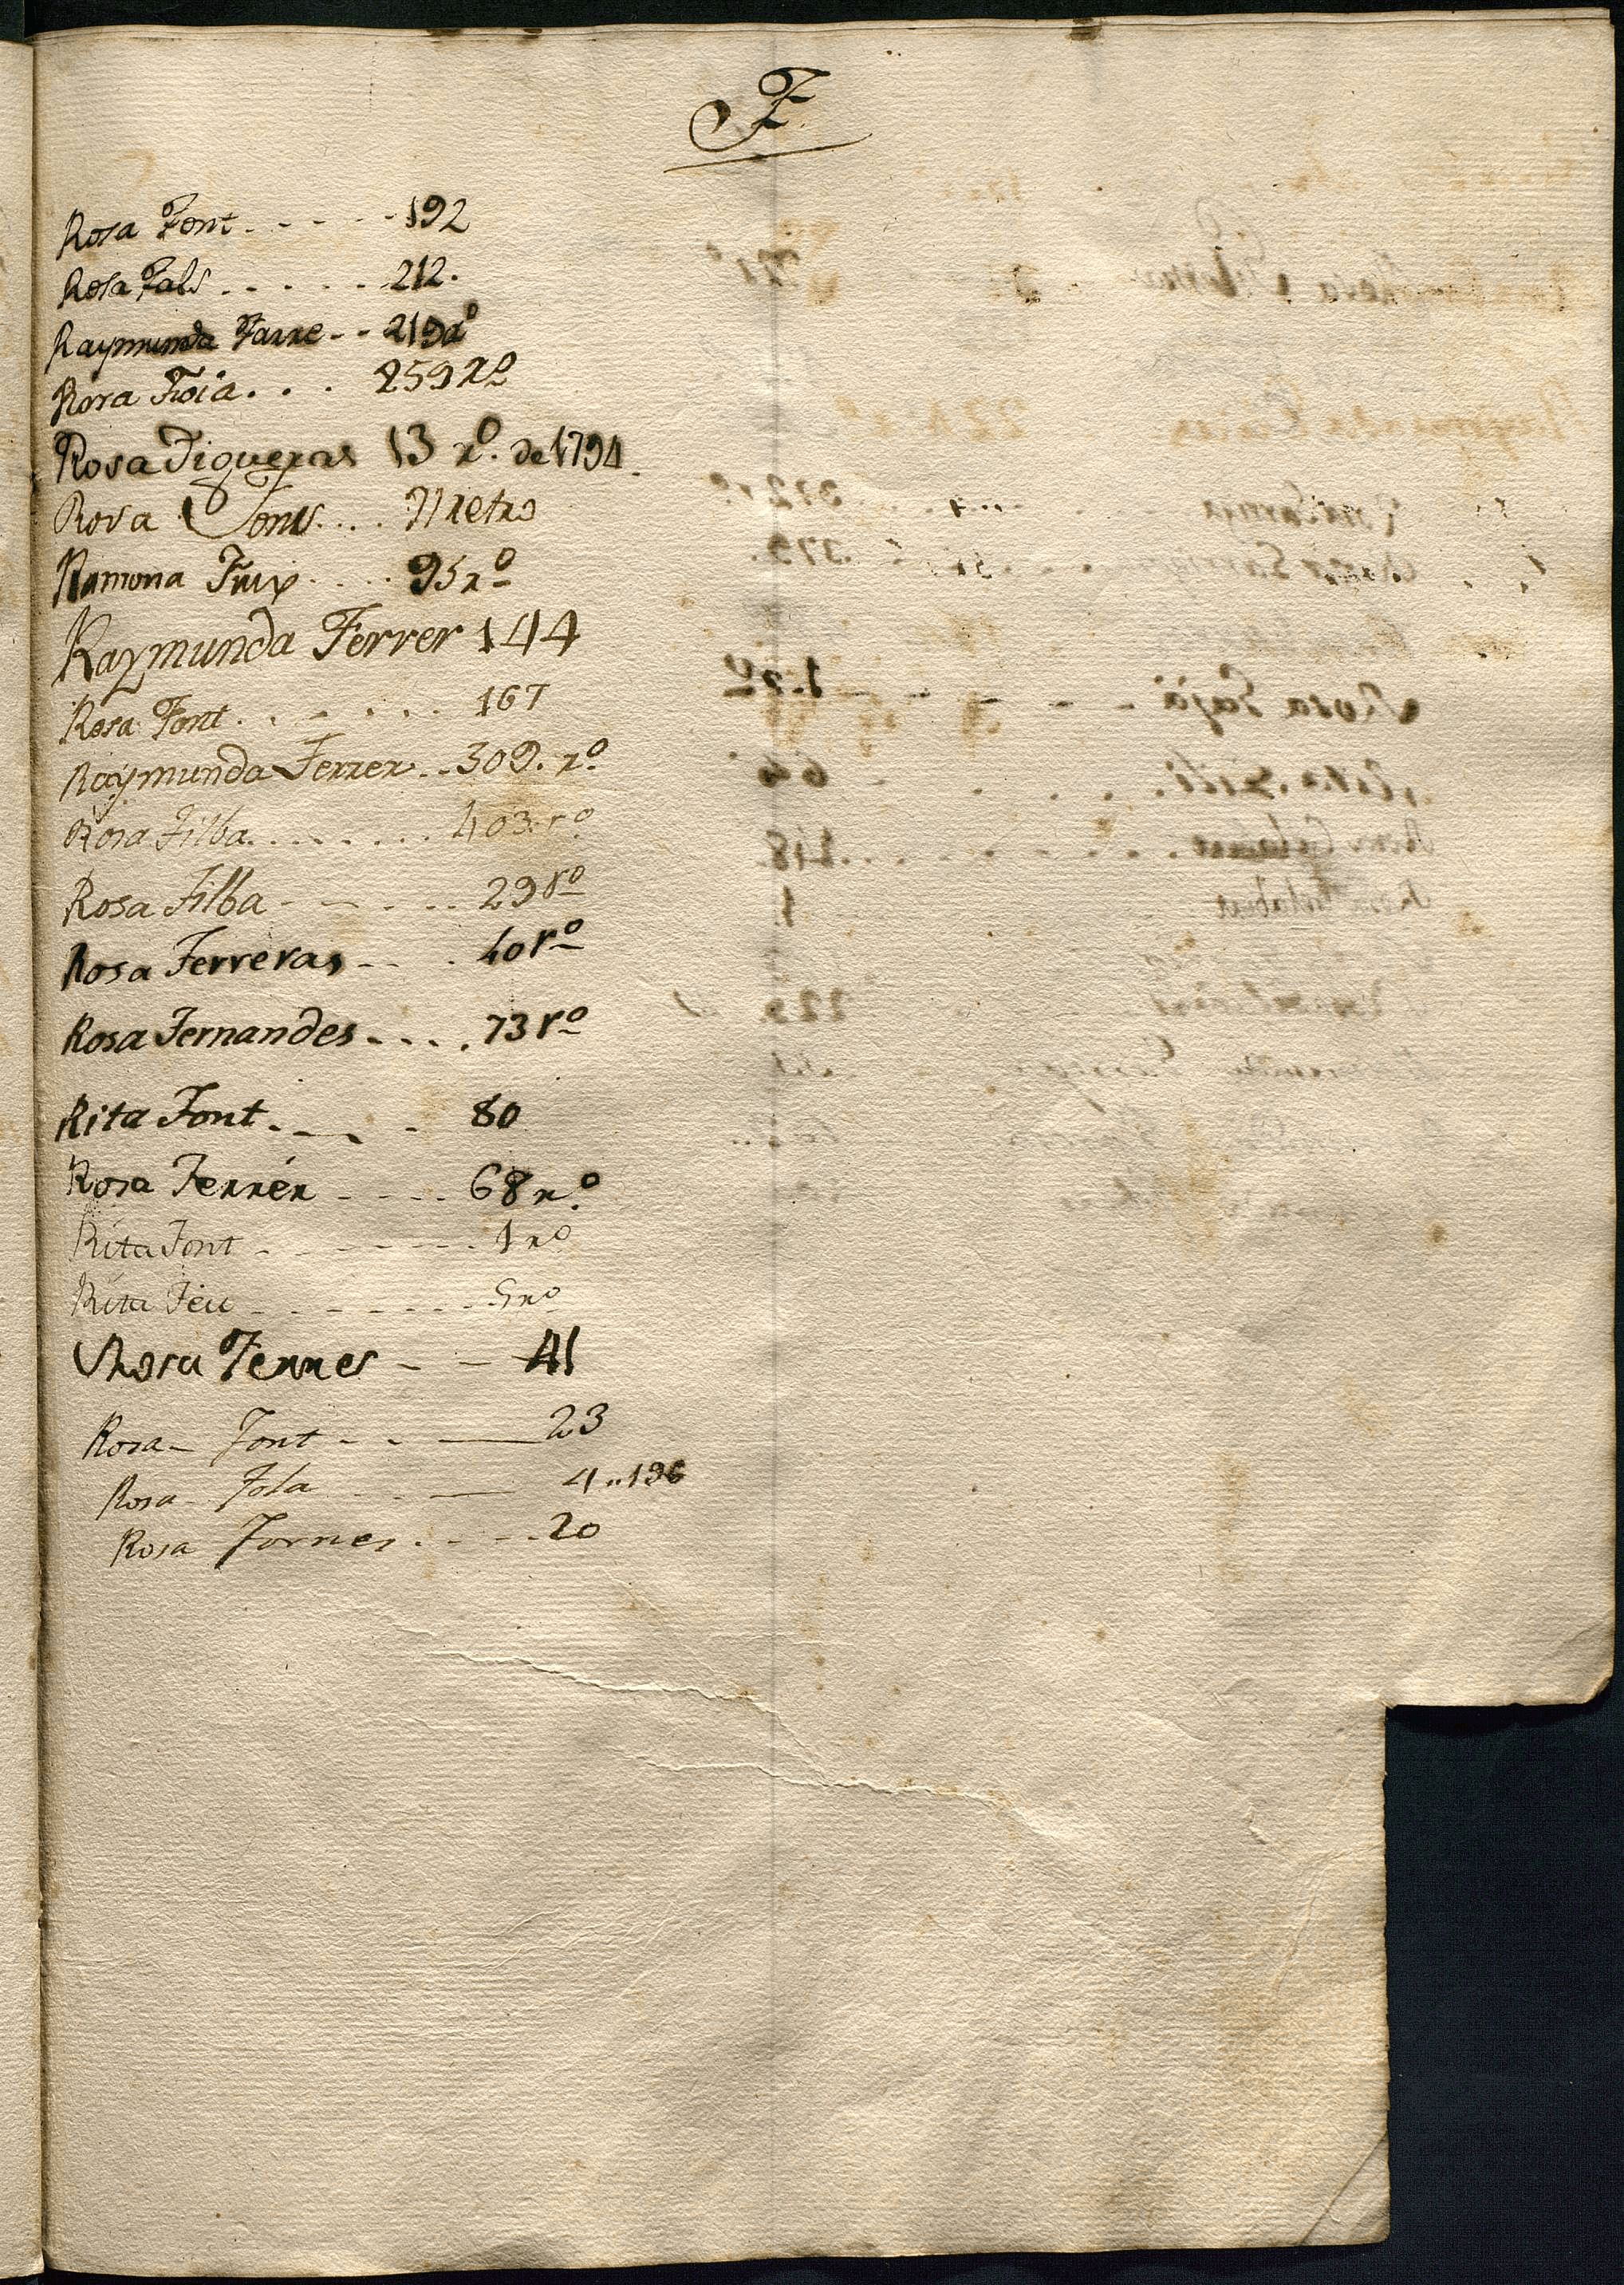 F
Rosa Font - - - - - 192
Rosa Fals . . . . . 212.
Raymunda Farre - - 219 rº
Rosa Foia . . . 259 rº
Rosa Figueras 13 rº. de 1794.
Rosa Fons . . . 71 retro
Ramona Fuix . . . . 95 rº
Raymunda Ferrer 144
Rosa Font . . - . . . 167
Raymunda Ferrer . . 309. rº
Rosa Filba . . . . . . . 403. rº
Rosa Filba - - - . . . 29 rº
Rosa Ferreras - - . 40 rº
Rosa Fernandes - . . . 73 rº
Rita Font . - - - 80
Rosa Ferrér - - - - 68 rº
Rita Font - - - - - - - 1 rº
Rita Feu - - - - - - - 5 rº
Rosa Ferrer - - 41
Rosa - Font - - — 23
Rosa - Fola - - — 4 " 196
Rosa Fornes . - - - 20